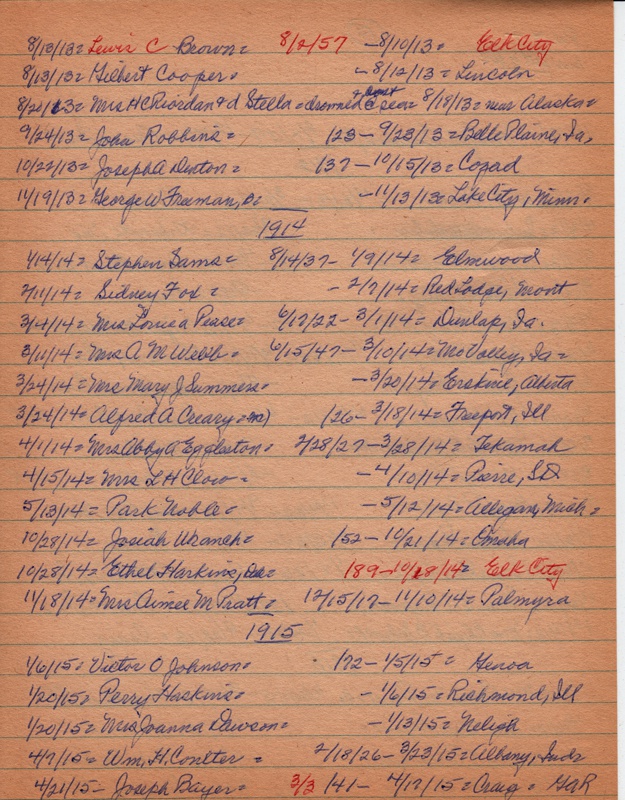 8/13/13= Lewis C Brown= 8/2/57 -8/10/13= Elk City
8/13/13= Gilbert Cooper= -8/12/13= Lincoln
8/20/13= Mrs H C Riordan & d Stella = drowned @ sea= 8/18/13= near Alaska=
9/24/13= John Robbins= 123- 9/23/13= Belle Plaine, Ia,
10/22/13= Joseph A Denton= 137- 10/15/13= Cozad
11/19/13= George W Freeman, -11/13/13= Lake City, Minn.
1914
1/14/14= Stephen Sams= 8/14/37- 1/9/14= Elmwood
2/11/14= Sidney Fox= - 2/7/14= Red Lodge, Mont
3/4/14= Mrs Louisa Pease= 6/17/22- 3/1/14= Dunlap, Ia.
3/11/14= Mrs A M Webb= 6/15/47- 3/10/14= Mo Valley, Ia=
3/24/14= Mrs Mary J Summers= -3/20/14= Erskine, Alberta
3/24/14= Alfred A Creary= 126- 3/18/14= Freeport, Ill
4/1/14= Mrs Abby A Eggleston= 2/28/27-3/28/14= Tekamah
4/15/14= Mrs L H Clow= -4/10/14= Pierre, SD
5/13/14= Park Noble= -5/12/14= Allegan, Mich=
10/28/14= Josiah 152- 10/21/14= Omaha
10/28/14= Ethel Harkins, 189-10/18/14= Elk City
11/18/14= Mrs Aimee M Pratt= 12/15/17- 11/10/14= Palmyra
1915
1/6/15= Victor O Johnson= 172- 1/5/15= Genoa
1/20/15= Perry Haskins= - 1/6/15= Richmond, Ill
1/20/15= Mrs Joanna Dawson= -1/13/15= Neligh
4/7/15= Wm. H. Coulter= 2/18/26- 3/23/15= Albany,
4/21/15- Joseph Bayer= 3/3 /41- 4/17/15= Craig= GAR